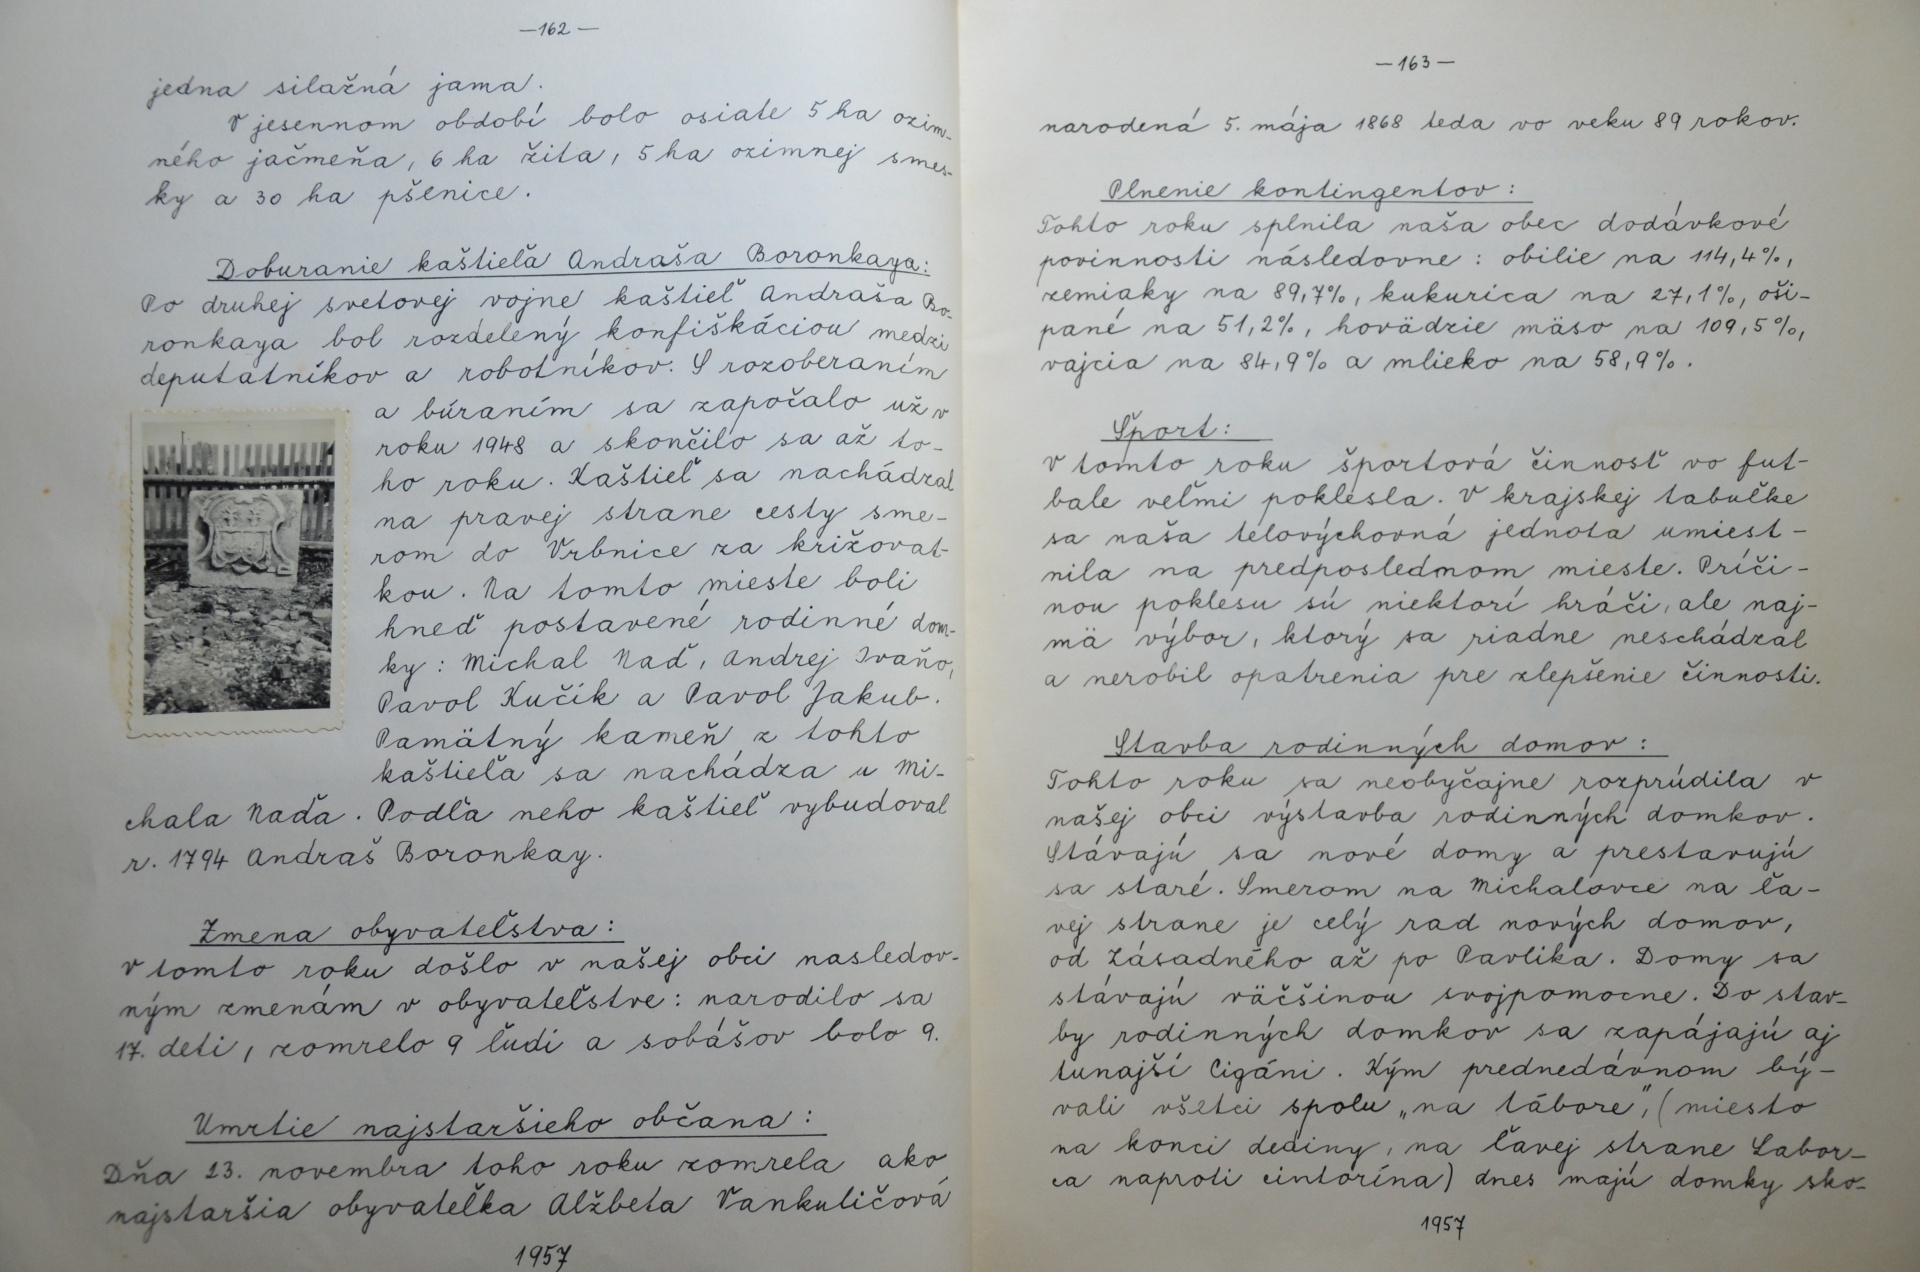 —162—
jedna silažná jama.
V jesennom období bolo osiate 5 ha ozim-
ného jačmeňa, 6 ha žita, 5 ha ozimnej smes-
ky a 30 ha pšenice.
Doburanie kaštieľa Andraša Boronkaya:
Po druhej svetovej vojne kaštieľ Andraša Bo-
ronkaya bol rozdelený konfiškáciou medzi
deputátnikov a robotníkov. S rozoberaním
a búraním sa započalo už v
roku 1948 a skončilo sa až to-
ho roku. Kaštieľ sa nachádzal
na pravej strane cesty sme-
rom do Vrbnice za križovat-
kou. Na tomto mieste boli
hneď postavené rodinné dom-
ky: Michal Naď, Andrej Ivaňo,
Pavol Kučík a Pavol Jakub.
Pamätný kameň z tohto
kaštieľa sa nachádza u Mi-
chala Naďa. Podľa neho kaštieľ vybudoval
r. 1794 Andraš Boronkay.
Zmena obyvateľstva:
V tomto roku došlo v našej obci nasledov-
ným zmenám v obyvateľstve: narodilo sa
17. deti, zomrelo 9 ľudi a sobášov bolo 9.
Umrtie najstaršieho občana:
Dňa 23. novembra toho roku zomrela ako
najstaršia obyvateľka Alžbeta Vankuličová
1957
—163—
narodená 5. mája 1868 teda vo veku 89 rokov.
Plnenie kontingentov:
Tohto roku splnila naša obec dodávkové
povinnosti následovne: obilie na 114,4%,
zemiaky na 89,7%, kukurica na 27,1%, oši-
pané na 51,2%, hovädzie mäso na 109,5%,
vajcia na 84,9% a mlieko na 58,9%.
Šport:
V tomto roku športová činnosť vo fut-
bale veľmi poklesla. V krajskej tabuľke
sa naša telovýchovná jednota umiest-
nila na predposlednom mieste. Príči-
nou poklesu sú niektorí hráči, ale naj-
mä výbor, ktorý sa riadne neschádzal
a nerobil opatrenia pre zlepšenie činnosti.
Stavba rodinných domov:
Tohto roku sa neobyčajne rozprúdila v
našej obci výstavba rodinných domkov.
Stávajú sa nové domy a prestavujú
sa staré. Smerom na Michalovce na ľa-
vej strane je celý rad nových domov,
od Zásadného až po Pavlika. Domy sa
stávajú väčšinou svojpomocne. Do stav-
by rodinných domkov sa zapájajú aj
tunajší Cigáni. Kým prednedávnom bý-
vali všetci spolu „na tábore", (miesto
na konci dediny, na ľavej strane Labor-
ca naproti cintorína) dnes majú domky sko-
1957